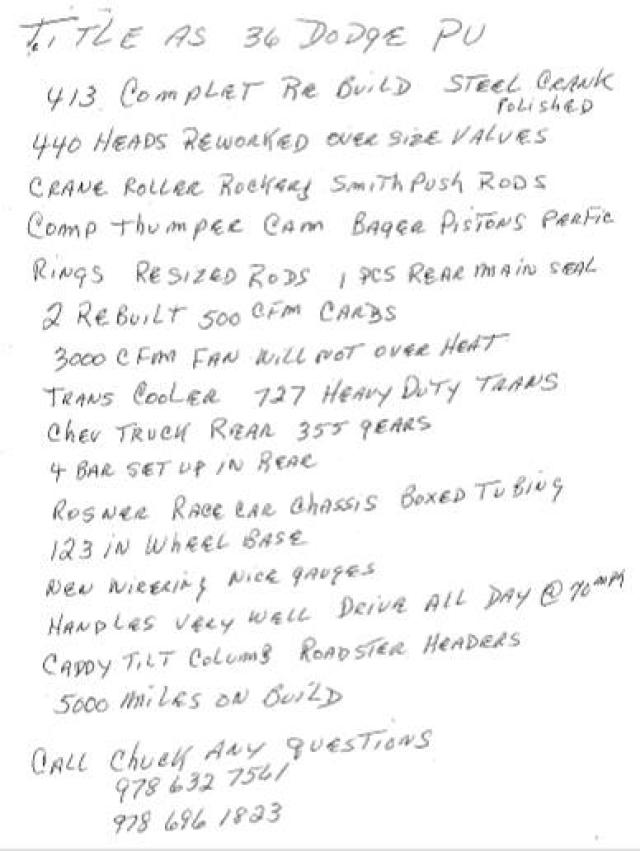 TITLE AS 36 DODGE PU
413 COMPLET RE BUILD STEEL CRANK
POLISHED
440 HEADS REWORKED OVER SIZE VALUES
CRANE ROLLER ROCKERS SMITH PUSH RODS
COMP THUMPER CAM BAGER PISTONS PERFIC
RINGS RESIZED RODS 1 PCS REAR MAIN SEAL
2 REBUILT 500 CFM CARBS
3000 CFM FAN WILL NOT OVER HEAT
TRANS COOLER 727 HEAVY DUTY TRANS
CHEV TRUCK REAR 355 GEARS
4 BAR SET UP IN REAR
ROSNER RACE CAR CHASSIS BOXED TUBING
123 IN WHEEL BASE
NEW WIRERING NICE GAUGES
HANDLES VERY WELL DRIVE ALL DAY @ 70 MPH
CADDY TILT COLUMB ROADSTER HEADERS
5000 MILES ON BUILD
CALL CHUCK ANY QUESTIONS
978 632 7561
978 696 1823